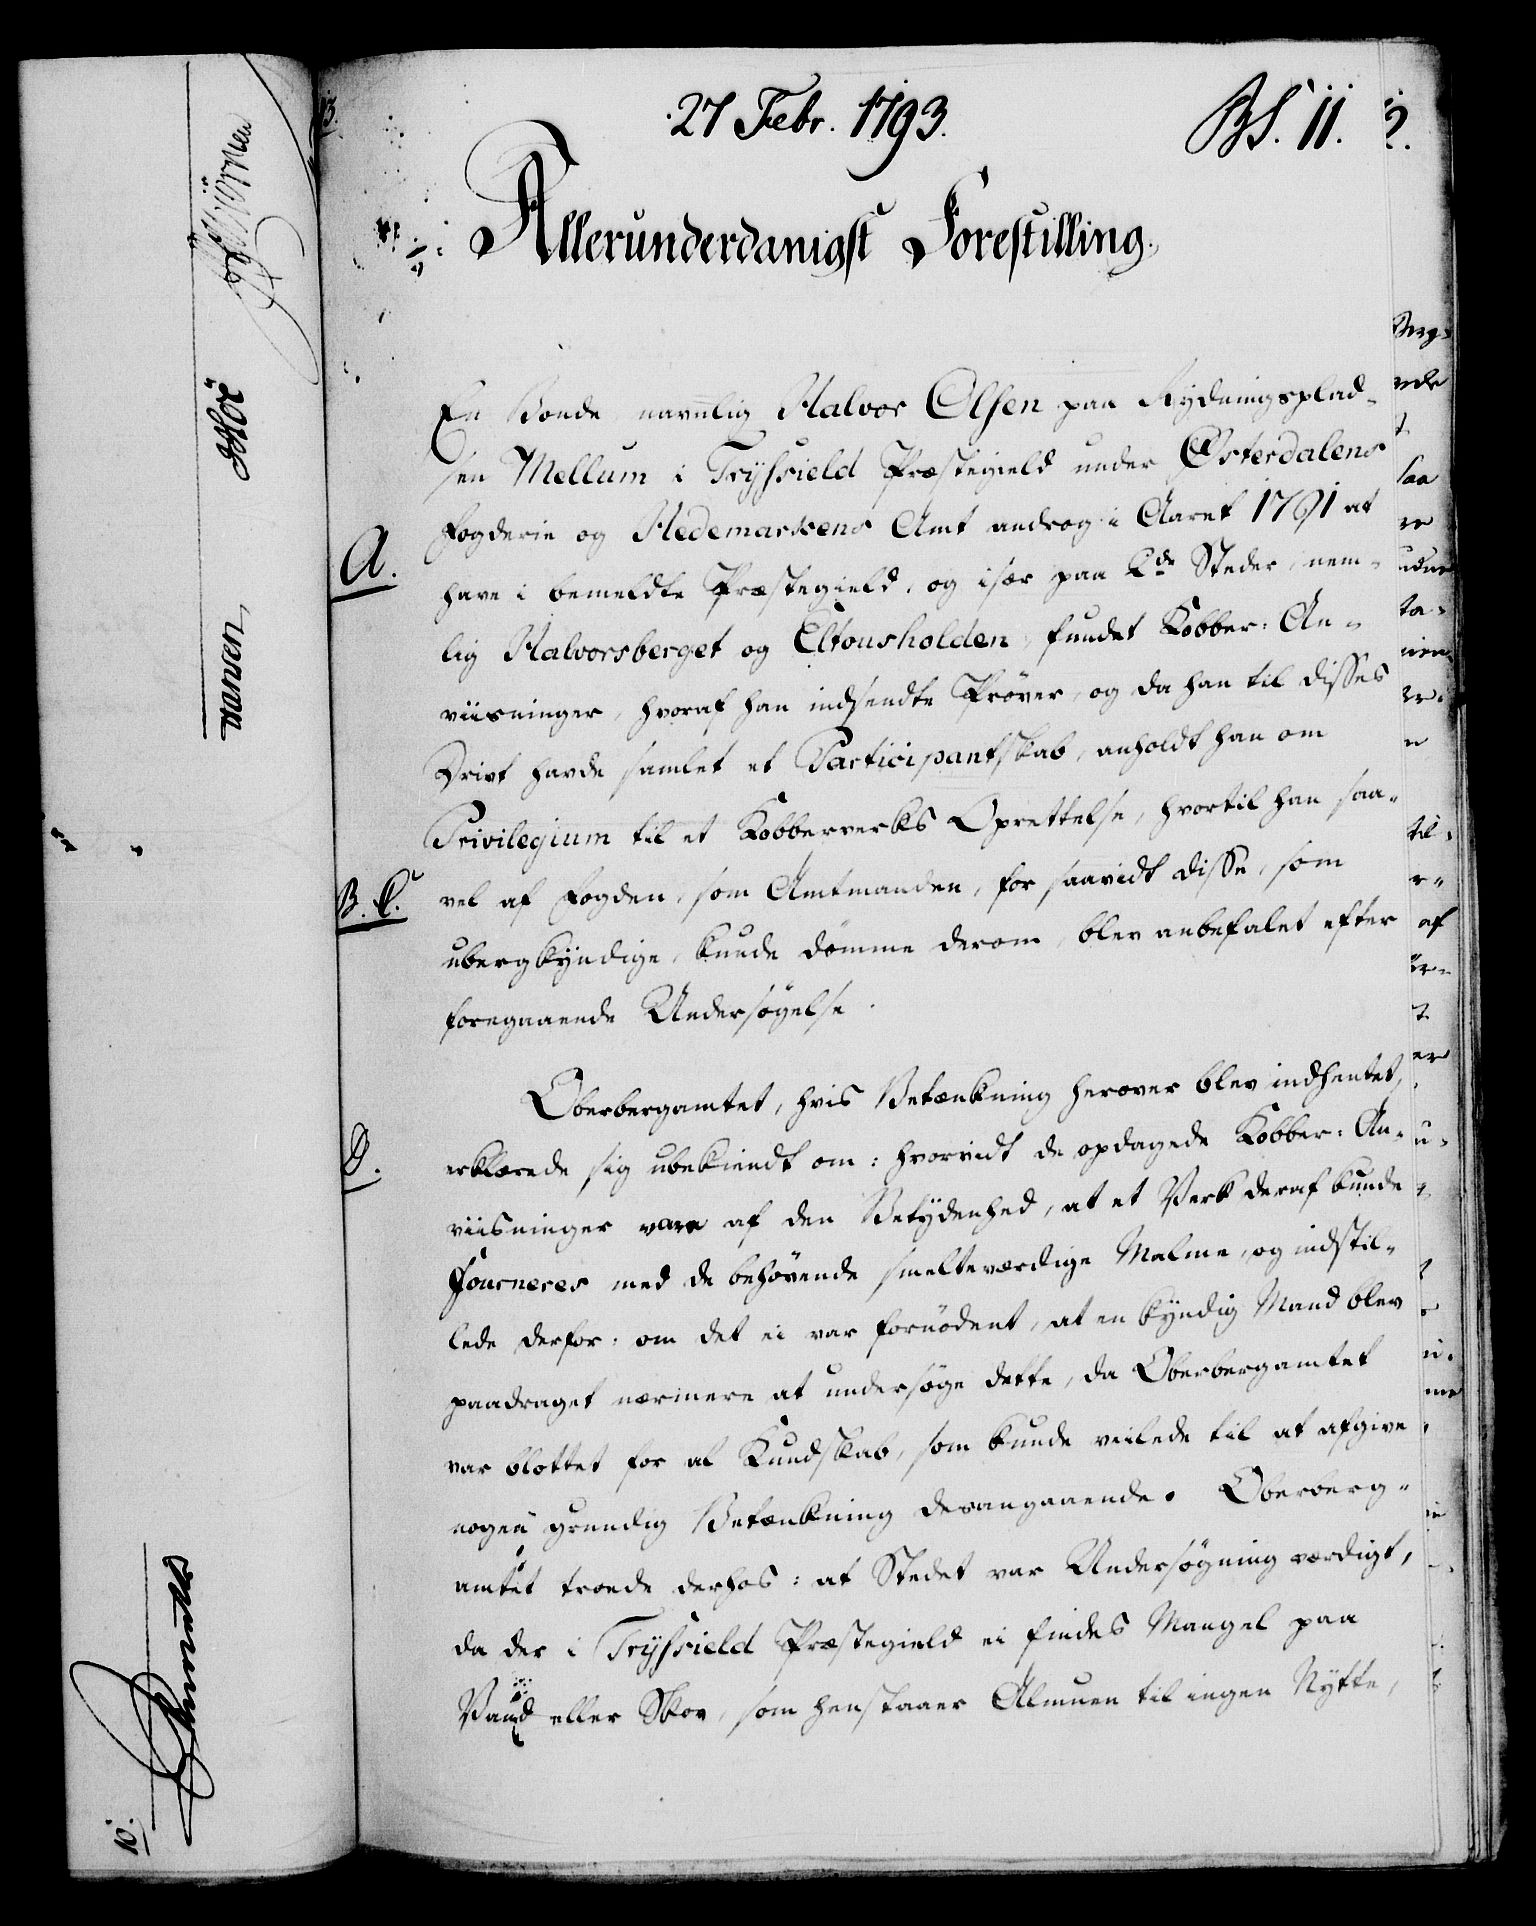 27 Febr. 1793.
BS. 11.
Allerunderdanigst Forestilling.
En Bonde navnlig Halvor Olsen paa Rydningsplad-
sen Mellum i Trysield Præstegield under Østerdalens
Fogderie og Hedemarkens Amt androg i Aaret 1791 at
A.
have i bemeldte Præstegield, og især paa 2de Steder, nem-
lig Halvorsberget og Eltonsholden, fundet Kobber-An-
viisninger, hvoraf han indsendte Prøver, og da han til disses
Drivt havde samlet et Participantskab, anholdt han om
Privilegium til et Kobberverks Oprettelse, hvortil han saa-
B. C.
vel af Fogden, som Amtmanden, for saavidt disse, som
ubergkyndige, kunde dömme derom, blev anbefalet efter
foregaaende Undersögelse.
Oberbergamtet, hvis Betænkning herover blev indhentet,
D.
erklærede sig ubekiendt om: hvorvidt de opdagede Kobber-An-
viisninger vare af den Betydenhed, at et Verk deraf kunde
fourneres med de behövende smelteværdige Malme, og indstil-
lede derfor: om det ei var fornödent, at en kyndig Mand blev
paadraget nærmere at undersöge dette, da Oberbergamtet
var blottet for al Kundskab, som kunde veilede til at afgive
nogen grundig Betænkning desangaaende. Oberberg-
amtet troede derhos: at Stedet var Undersögning værdigt,
da der i Trysield Præstegield ei findes Mangel paa
Vand eller Skov, som henstaaer Almuen til ingen Nytte,